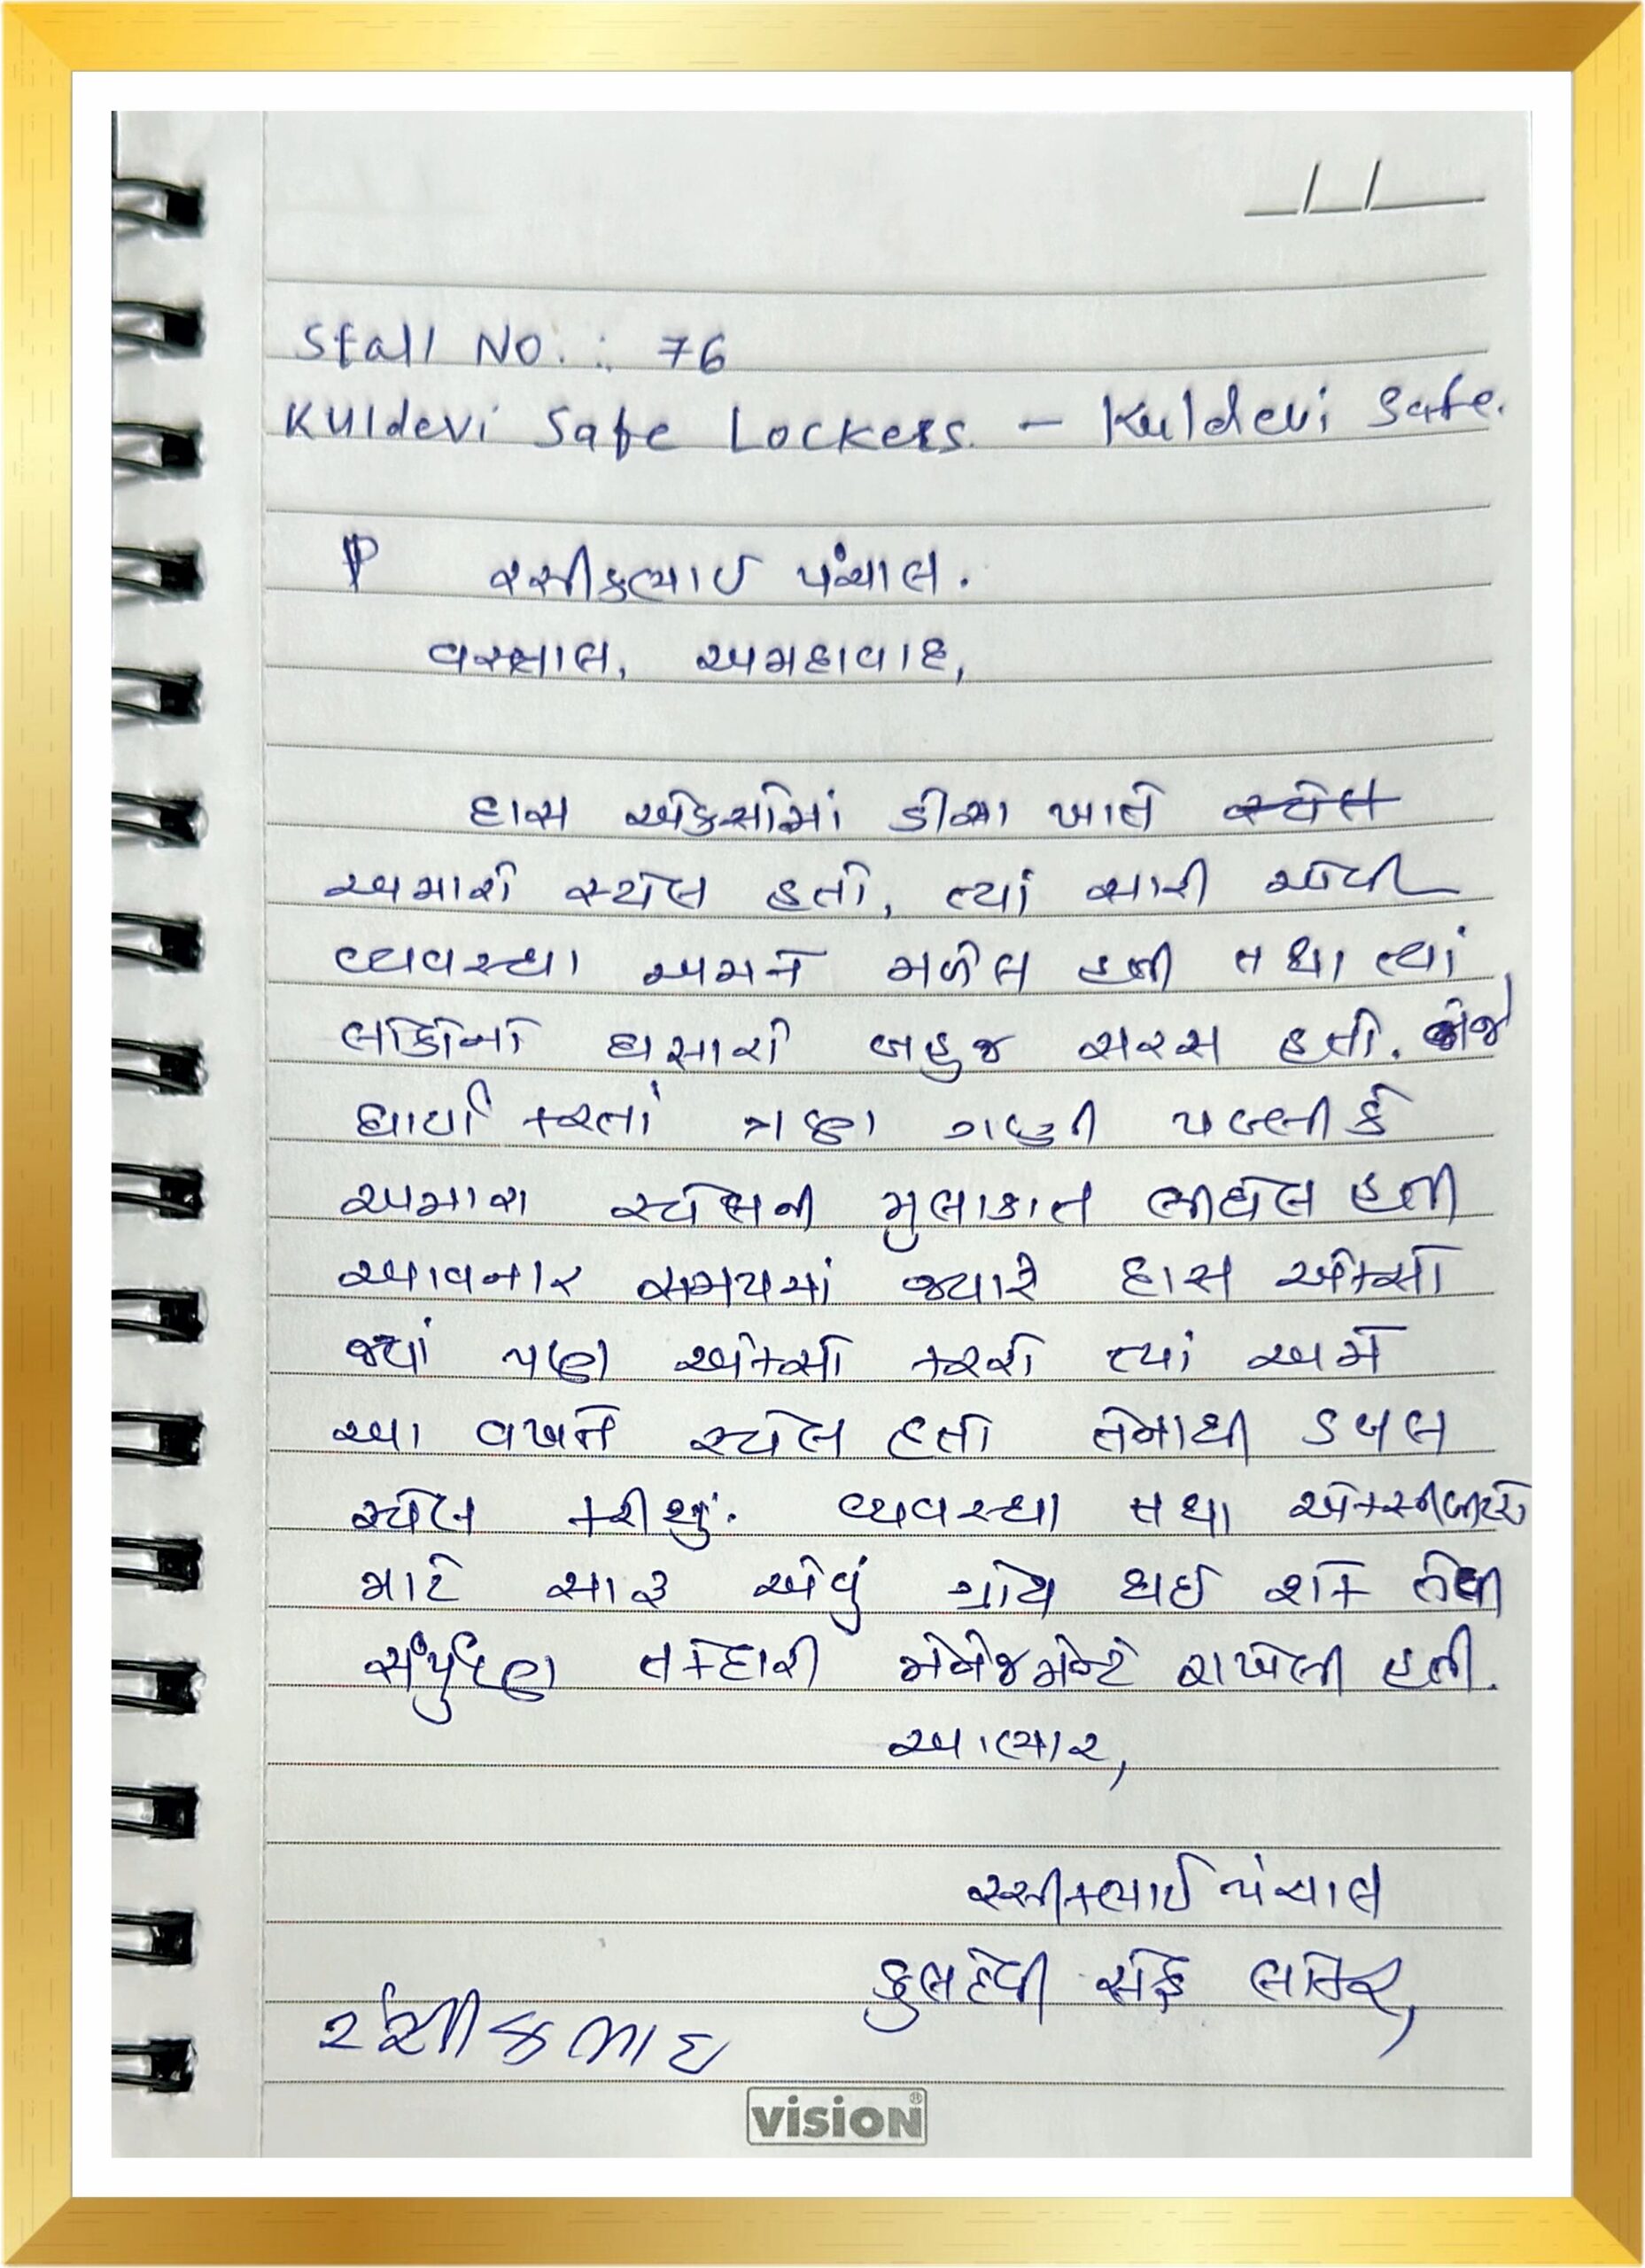 Stall No. : 76
Kuldevi Safe Lockers. - Kuldevi Safe.
રસીકભાઈ પંચાલ.
વસ્ત્રાલ, અમદાવાદ,
હાસ એકસ્પોમાં ડીસા ખાતે સ્ટોલ
અમારો સ્ટોલ હતો, ત્યાં સારી એવી
વ્યવસ્થા અમને મળેલ હતી તથા ત્યાં
લોકોનો ધસારો બહુજ સરસ હતો.
ધાર્યા કરતાં ત્રણ ગણી પબ્લીકે
અમારા સ્ટોલની મુલાકાત લીધેલ હતી
આવનાર સમયમાં જ્યારે હાસ એક્સ્પો
જ્યાં પણ એક્સ્પો કરશે ત્યાં અમે
આ વખતે સ્ટોલ હતો તેનાથી ડબલ
સ્ટોલ કરીશું. વ્યવસ્થા તથા
માટે સારૂ એવું ગ્રોથ થઈ શકે તેવી
સંપુર્ણ તકેદારી મેનેજમેન્ટે રાખેલી હતી.
આભાર,
રસીકભાઈ પંચાલ
કુલદેવી સેફ લોકર,
રસીકભાઇ
VISION